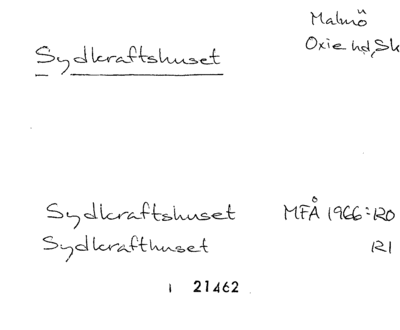 Malmö
Oxie hd, Sk
Sydkraftshuset
Sydkraftshuset MFÅ 1966:120
Sydkrafthuset 121
1 21462